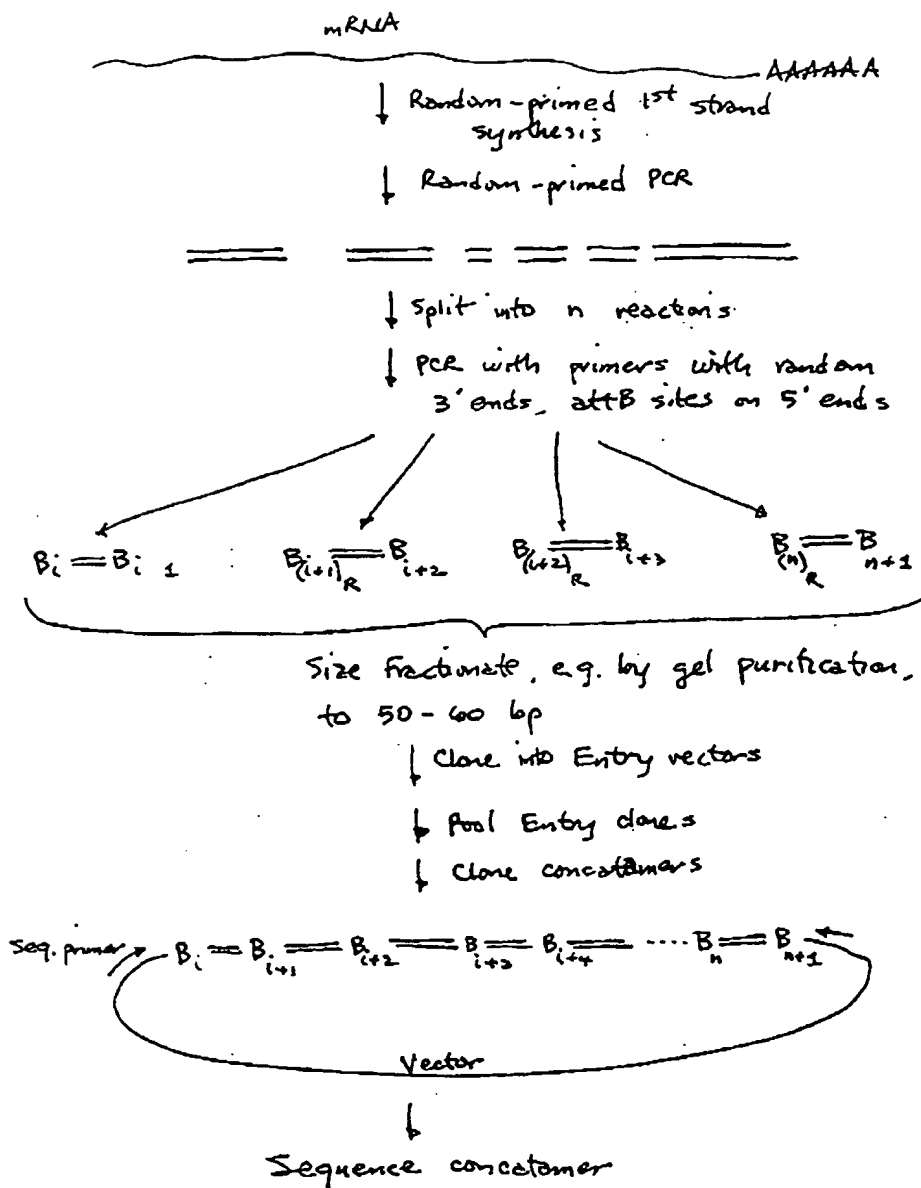 mRNA
AAAAAA
Random-primed 1st strand
synthesis
Random-primed PCR
Split into n reactions
PCR with primers with random
3' ends, attB sites on 5' ends
Bi Bi 1 B(i+1)R Bi+2 B(i+2)R Bi+3 B(n)R Bn+1
Size fractionate, e.g. by gel purification,
to 50-60 bp
Clone into Entry vectors
Pool Entry clones
Clone concatamers
Seq. primer Bi Bi+1 Bi+2 Bi+3 Bi+4 .... Bn Bn+1
Vector
Sequence concatomer